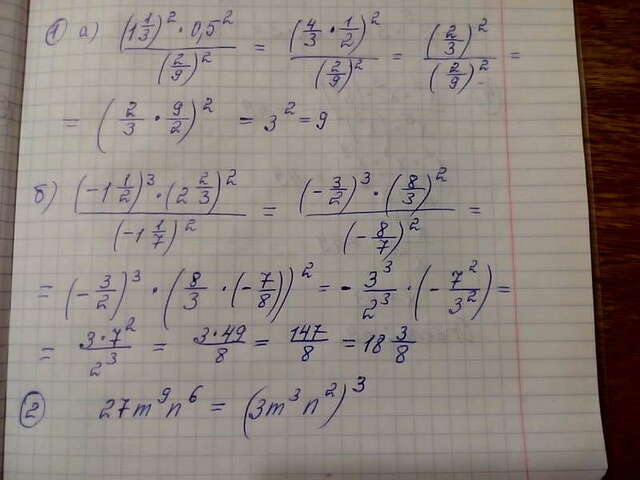 ① а) (1 1/3)² · 0,5² / (2/9)² = (4/3 · 1/2)² / (2/9)² = (2/3)² / (2/9)² =
= (2/3 · 9/2)² = 3² = 9
б) (-1 1/2)³ · (2 2/3)² / (-1 1/7)² = (-3/2)³ · (8/3)² / (-8/7)² =
= (-3/2)³ · (8/3 · (-7/8))² = - 3³/2³ · (-7²/3²) =
= 3·7²/2³ = 3·49/8 = 147/8 = 18 3/8
② 27m⁹n⁶ = (3m³n²)³